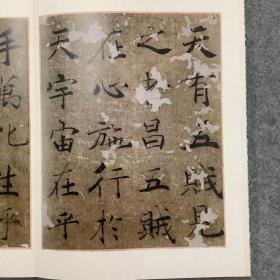 天有五賊見
之者昌五賊
在心施行於
天宇宙在乎
手萬化生乎